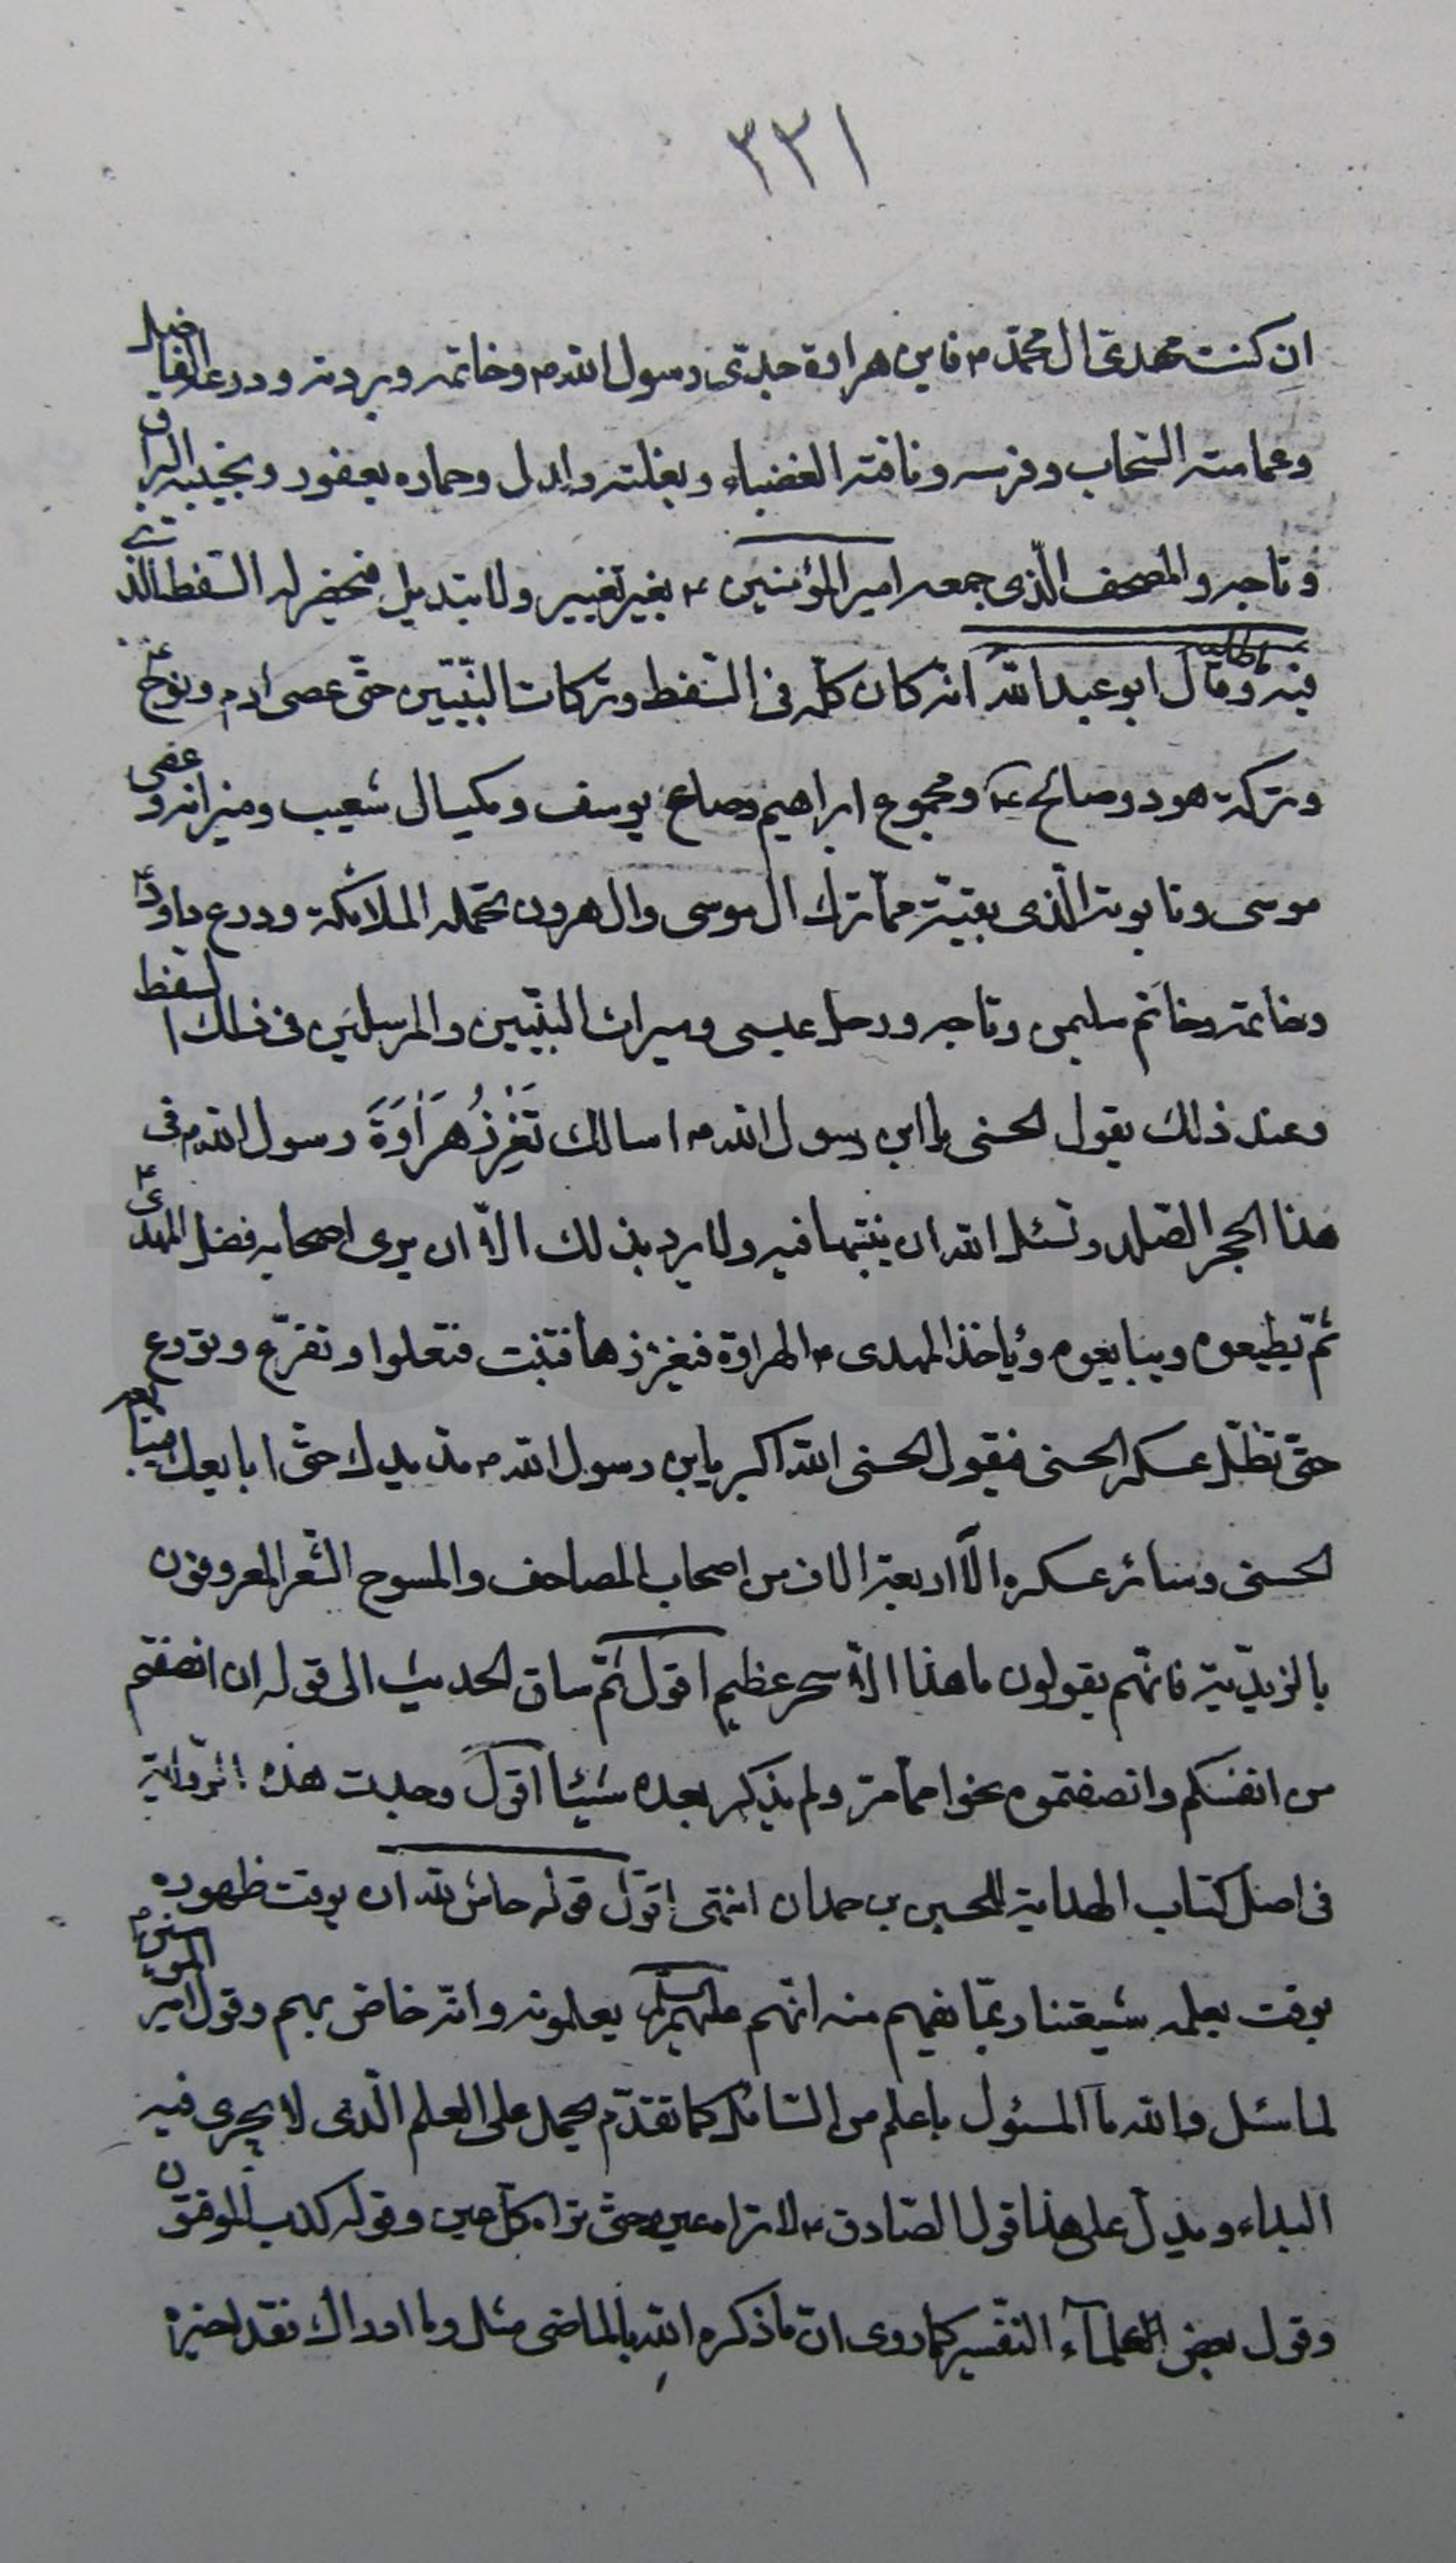 ٣٣١
ان كنت مهدى ال محمّد ص فاين هراوة جدّى رسول الله ص وخاتمه وبردته ودرعه الفاضل
وعمامته السّحاب وفرسه وناقته الغضباء وبغلته دلدل وحماره يعفور ونجيبه البراق
وتاجه والمصحف الّذى جمعه امير المؤمنين ع بغير تغيير ولا تبديل فيحضر له السّفط الّذى
فيه ما طلبه وقال ابو عبد الله انّه كان كلّه فى السّفط وتركات النّبيّين حتّى عصى ادم ونوح ع
وتركة هود وصالح ع ومجموع ابراهيم وصاع يوسف ومكيال شعيب وميزانه وعصى
موسى وتابوته الّذى بقيّة ممّا ترك ال موسى وال هرون تحمله الملائكة ودرع داود ع
وخاتمه وخاتم سليمن وتاجه ورحل عيسى وميراث النّبيّين والمرسلين فى ذلك السفط
وعند ذلك يقول الحسنى يا ابن رسول الله ص اسالك تَغْرِزُ هَرَاوَةَ رسول الله ص فى
هذا الحجر الصّلد وتسئل الله ان ينبتها فيه ولا يريد بذلك الّا ان يرى اصحابه فضل المهدى ع
ثمّ يطيعوه ويبايعوه وياخذ المهدى ع الهراوة فيغرزها فتنبت فتعلوا وتفرّع وتورع
حتّى تظلّ عسكر الحسنى فيقول الحسنى الله اكبر يابن رسول الله ص مدّ يدك حتّى ابايعك فيبايعه
الحسنى وسائر عسكره الّا اربعة الاف من اصحاب المصاحف والمسوح الشّعر المعروفون
بالزيديّة فانّهم يقولون ما هذا الّا سحر عظيم اقول ثمّ ساق الحديث الى قوله ان انصفتم
من انفسكم وانصفتموه نحوا ممّا مرّ ولم يذكر بعده شيئا اقول وجدت هذه الرّواية
فى اصل كتاب الهداية للحسين بن حمدان انتهى اقول قوله حاش لله ان يوقت ظهوره
بوقت يعلمه شيعتنا ربّما يفهم منه انّهم عليهم السلم يعلمونه وانّه خاصّ بهم وقول امير المؤمنين ع
لما سئل والله ما المسئول باعلم من السّائل كما تقدّم يحمل على العلم الّذى لا يجرى فيه
البداء ويدلّ على هذا قول الصّادق ع لا تراه عين حتّى تراه كلّ عين وقوله كذب الموقتون
وقول بعض العلمآء التفسير كما روى انّ ما ذكره الله بالماضى مثل وما ادراك فقد اخبره